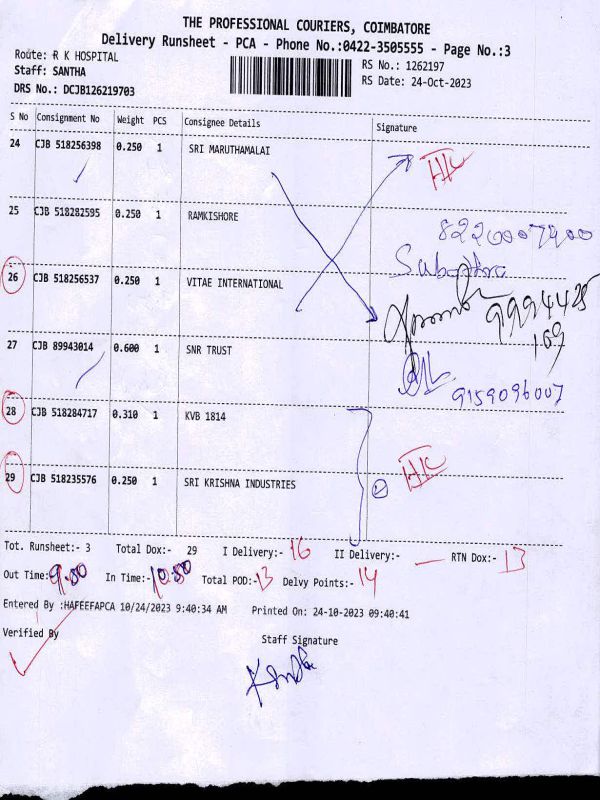 THE PROFESSIONAL COURIERS, COIMBATORE
Delivery Runsheet - PCA - Phone No.:0422-3505555 - Page No.:3
Route: R K HOSPITAL
RS No.: 1262197
Staff: SANTHA
RS Date: 24-Oct-2023
DRS No.: DCJB126219703
S No Consignment No Weight PCS Consignee Details Signature
24 CJB 518256398 0.250 1 SRI MARUTHAMALAI
25 CJB 518282595 0.250 1 RAMKISHORE
8220007400
26 CJB 518256537 0.250 1 VITAE INTERNATIONAL
9994425
169
27 CJB 89943014 0.600 1 SNR TRUST
9159096007
28 CJB 518284717 0.310 1 KVB 1814
29 CJB 518235576 0.250 1 SRI KRISHNA INDUSTRIES
Tot. Runsheet:- 3 Total Dox:- 29 I Delivery:- 16 II Delivery:- — RTN Dox:- 13
Out Time:- 9.80 In Time:- 10.50 Total POD:- 13 Delvy Points:- 14
Entered By :HAFEEFAPCA 10/24/2023 9:40:34 AM Printed On: 24-10-2023 09:40:41
Verified By
Staff Signature